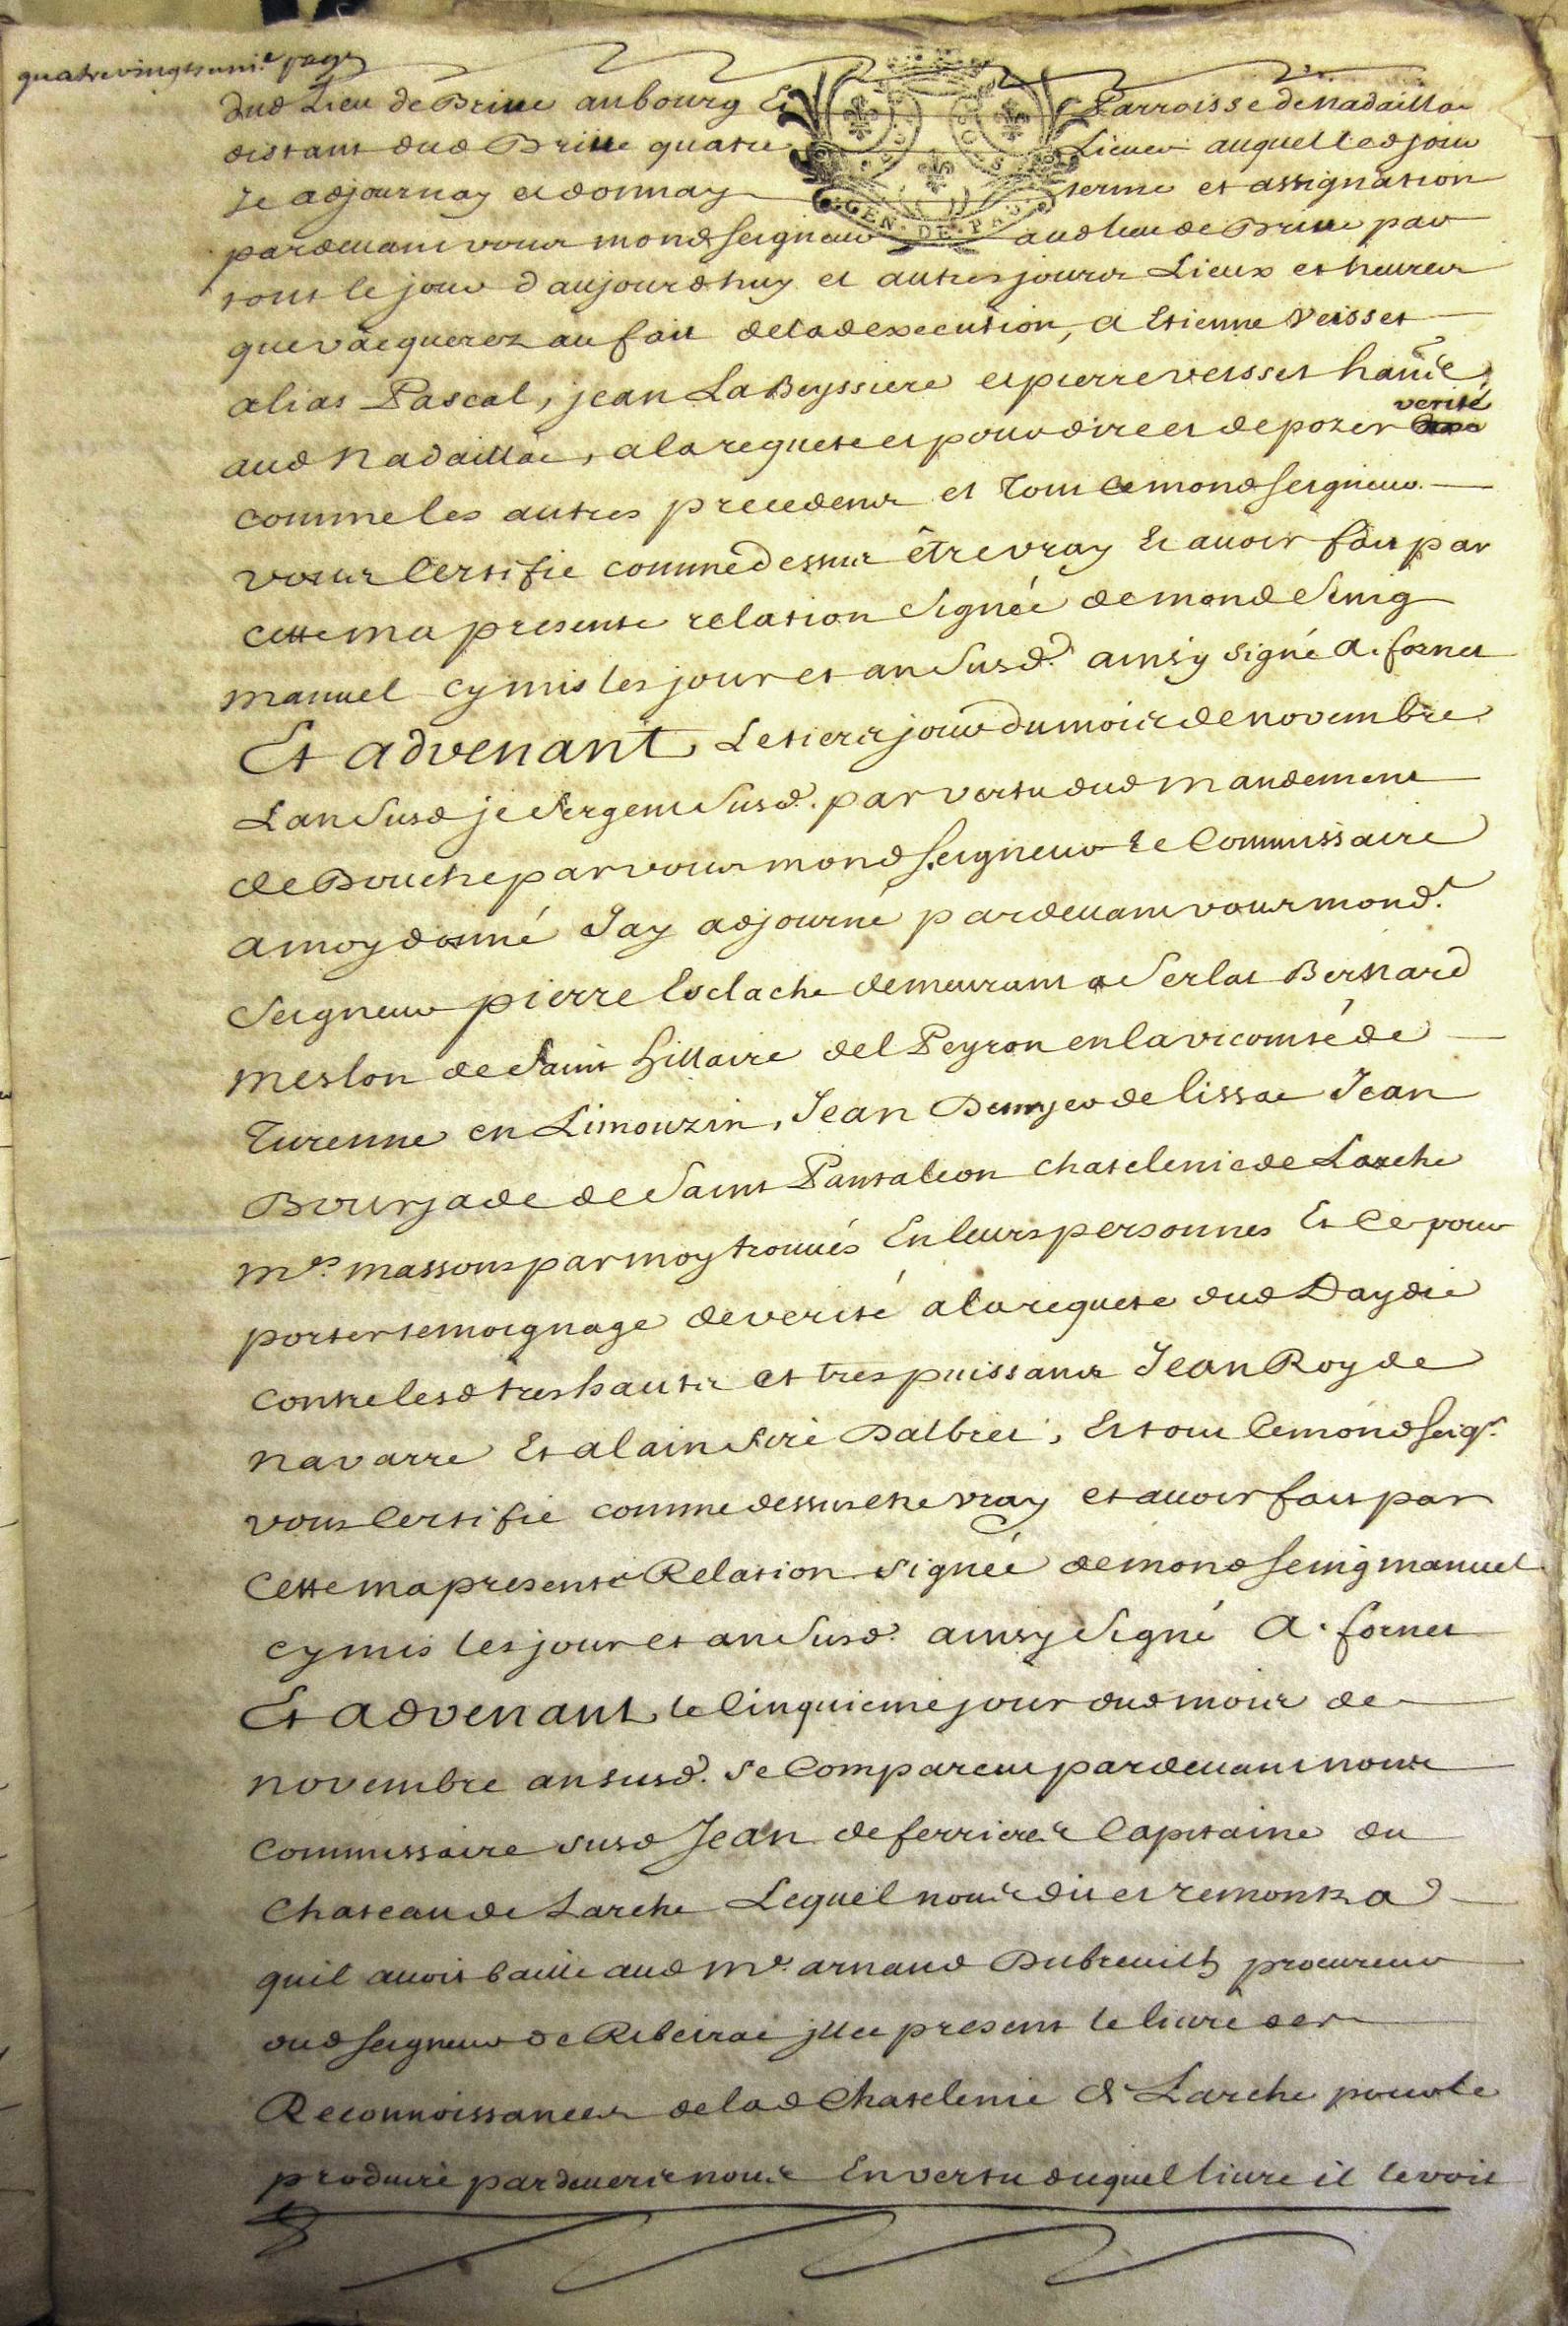 quatrevingts uni.e page
dud Lieu de Brive au bourg Et Parroisse de nadaillac
distant dud Brive quatre Lieues auquel led jour
Je adjournay et donnay terme et assignation
pardevant vous mond seigneur aud lieu de Brive par
tout le jour d'aujourdhuy et autres jours Lieux et heures
que vacquerez au fait delad execution, a Etienne Veisset
alias Pascal, jean La Beyssiere et pierre veisset
aud nadaillac, a la requete et pour dire et depozer verité
comme les autres precedens et tout ce mond seigneur
vous Certifie comme dessus être vray Et avoir fait par
cette ma presente relation Signée de mond Seing
manuel cy mis les jour et an Susd. ainsy signé a. fornet
Et advenant Le tiers jour du mois de novembre
L'an Susd je Sergent Susd. par vertu dud mandement
de Bouche par vous mond seigneur le Commissaire
a moy donné Jay adjourné pardevant vous mond.
Seigneur pierre Esclache demeurant a Serlat Bernard
meslon de Saint hillaire del Peyron en la vicomté de
Turenne en Limouzin, Jean de lissac Jean
Bourjade de Saint Pantaleon chatelenie de Larche
m.es massons par moy trouvés En leurs personnes Et Ce pour
porter temoignage de verité a la requete dud Daydie
contre lesd tres hauts et tres puissants Jean Roy de
navarre Et alain Sire Dalbret, Et tout Ce mond seigr.
vous Certifie comme dessus etre vray et avoir fait par
Cette ma presente Relation signée de mond seing manuel
cy mis les jour et an Susd. ainsy Signé A. fornet
Et advenant le Cinquieme jour dud mois de
novembre an susd. Se Comparent pardevant nous
Commissaire susd Jean de ferrieres Capitaine du
Chateau de Larche Lequel nous dit et remontra
quil avoit baillé aud me. arnaud Dubreuilh procureur
dud seigneur de Ribeirac illec present le livre des
Reconnoissances delad Chatelenie de Larche pour le
produire pardevers nous En vertu duquel livre il levoit
GEN. DE. PAU